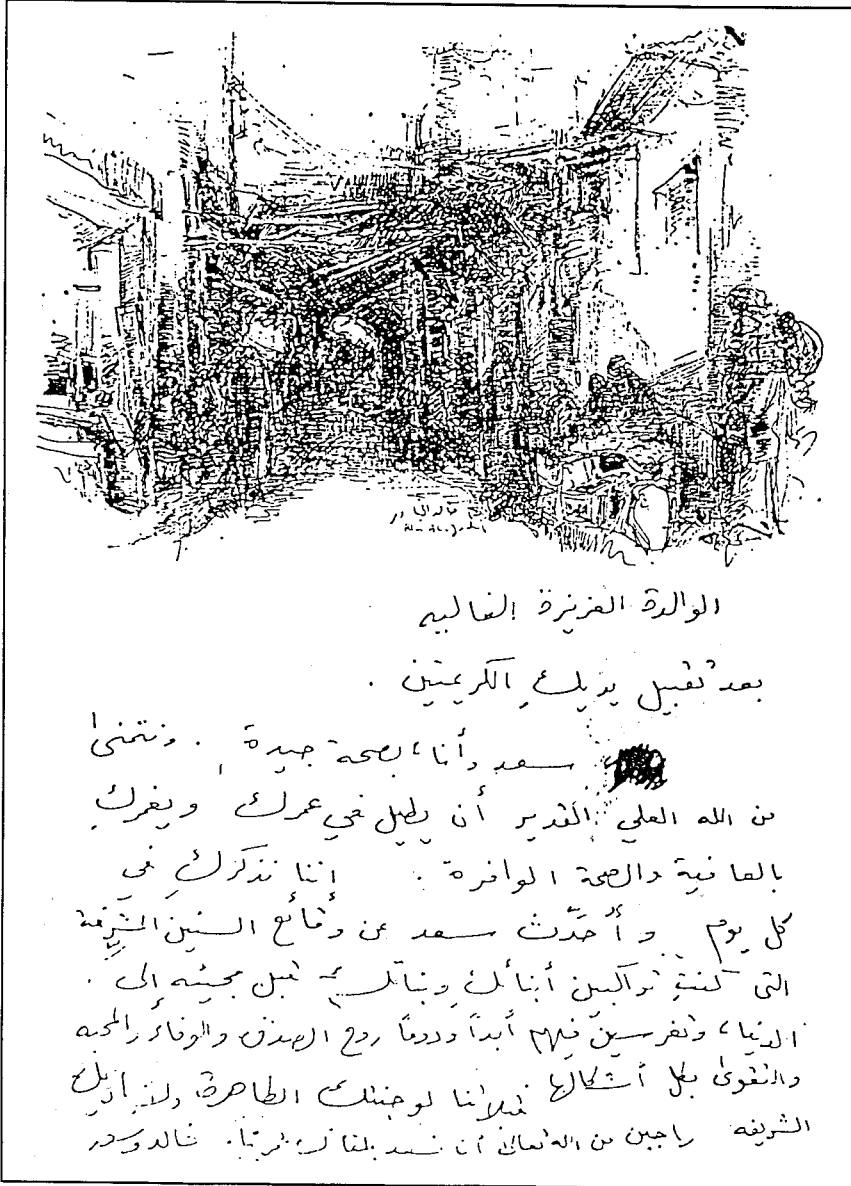 الوالدة العزيزة الغاليه
بعد تقبيل يديك الكريمتين .
سعد وأنا بصحة جيدة . ونتمنى
من الله العلي القدير أن يطيل في عمرك ويغمرك
بالعافية والصحة الوافرة . إننا نذكرك في
كل يوم وأُحَدِّث سعد عن وقائع السنين المشرِّفة
التي كنتِ تواكبين أبنائك وبناتك قبل مجيئه إلى
الدنيا ، وتغرسين فيهم أبداً ودوماً روح الصدق والوفاء والمحبه
والتقوى بكل أشكالها قبلاتنا لوجنتك الطاهرة
الشريفه راجين من الله تعالى أن نسعد بلقائك قريبا . خالد وسعد